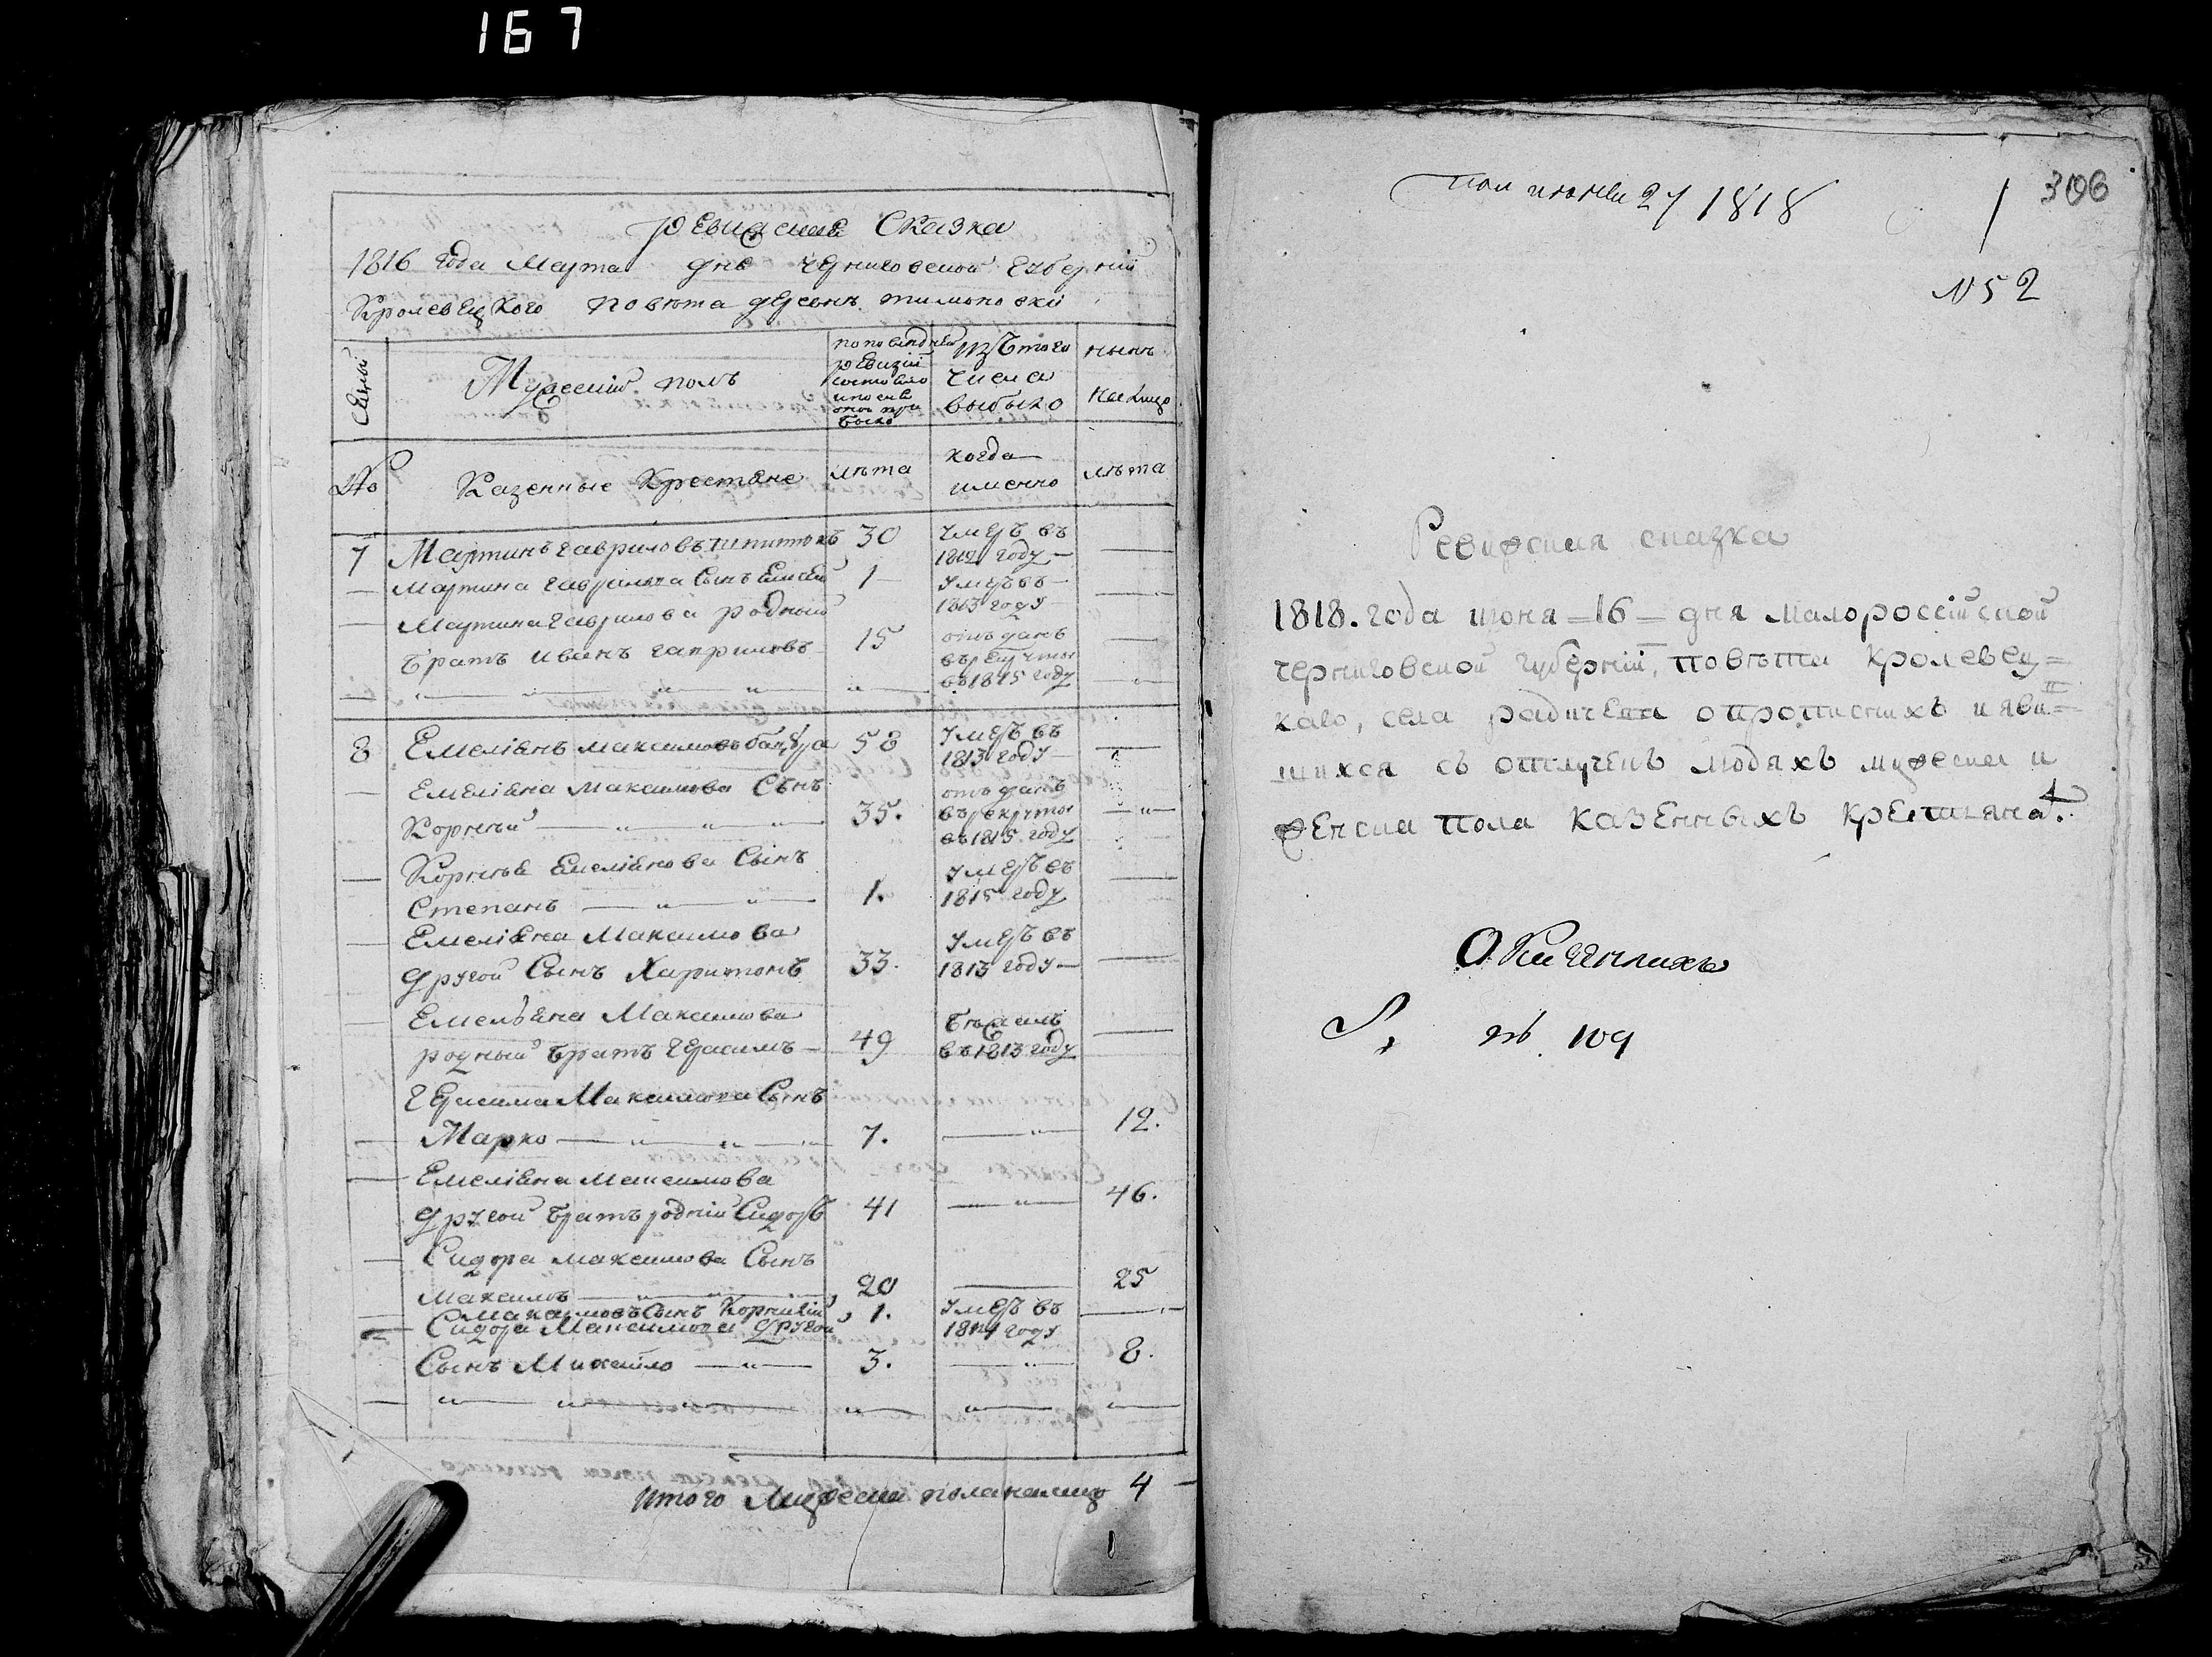 167
Ревиская Сказка
1816 года Марта дня Черниговской Губернии
Кролевецкого повета деревнѣ тимоновки
Семьи
Мужеский полъ
по последней ревизии состояло и после оной при было
Изъ того числа выбыло
нынѣ на лицо
№
Казенные Крестяне
лета
когда именно
лѣта
7 Мартинъ гавриловъ 30 Умеръ въ 1812 году
Мартина гаврилова Сынъ Елисей 1 Умеръ въ 1813 году
Мартина гаврилова родный
братъ иванъ гавриловъ 15 отъ данъ въ рекруты въ 1815 году
8 Емелiянъ максимовъ 58 Умеръ въ 1813 году
Емелiяна максимова Сынъ
Корнѣй 35. отъ данъ въ рекруты въ 1815 году
Корнѣя Емелiянова Сынъ
Степанъ 1. Умеръ въ 1815 году
Емелiяна Максимова
другой Сынъ Харитонъ 33. Умеръ въ 1813 году
Емельяна Максимова
родный братъ Герасимъ 49 бѣжалъ въ 1813 году
Герасима Максимова Сынъ
Марко 7. 12.
Емелiяна Максимова
другой братъ родній Сидоръ 41 46.
Сидора максимова Сынъ
Максимъ 20 25
Максимовъ Сынъ Корнилий 1. умеръ въ 1814 году
Сидора Максимова другой
Сынъ Михайло 3. 8.
Итого Мужеска пола налицо 4
1
27 1818
1
306
N 52
Ревизская сказка
1818. года июня 16 дня Малороссiйской
черниговской губернiи, повѣта Кролевец=
каго, села радичева о прописныхъ и яви=
шихся съ отлучекъ людяхъ мужеска и
женска пола казенныхъ крестьянъ.
109